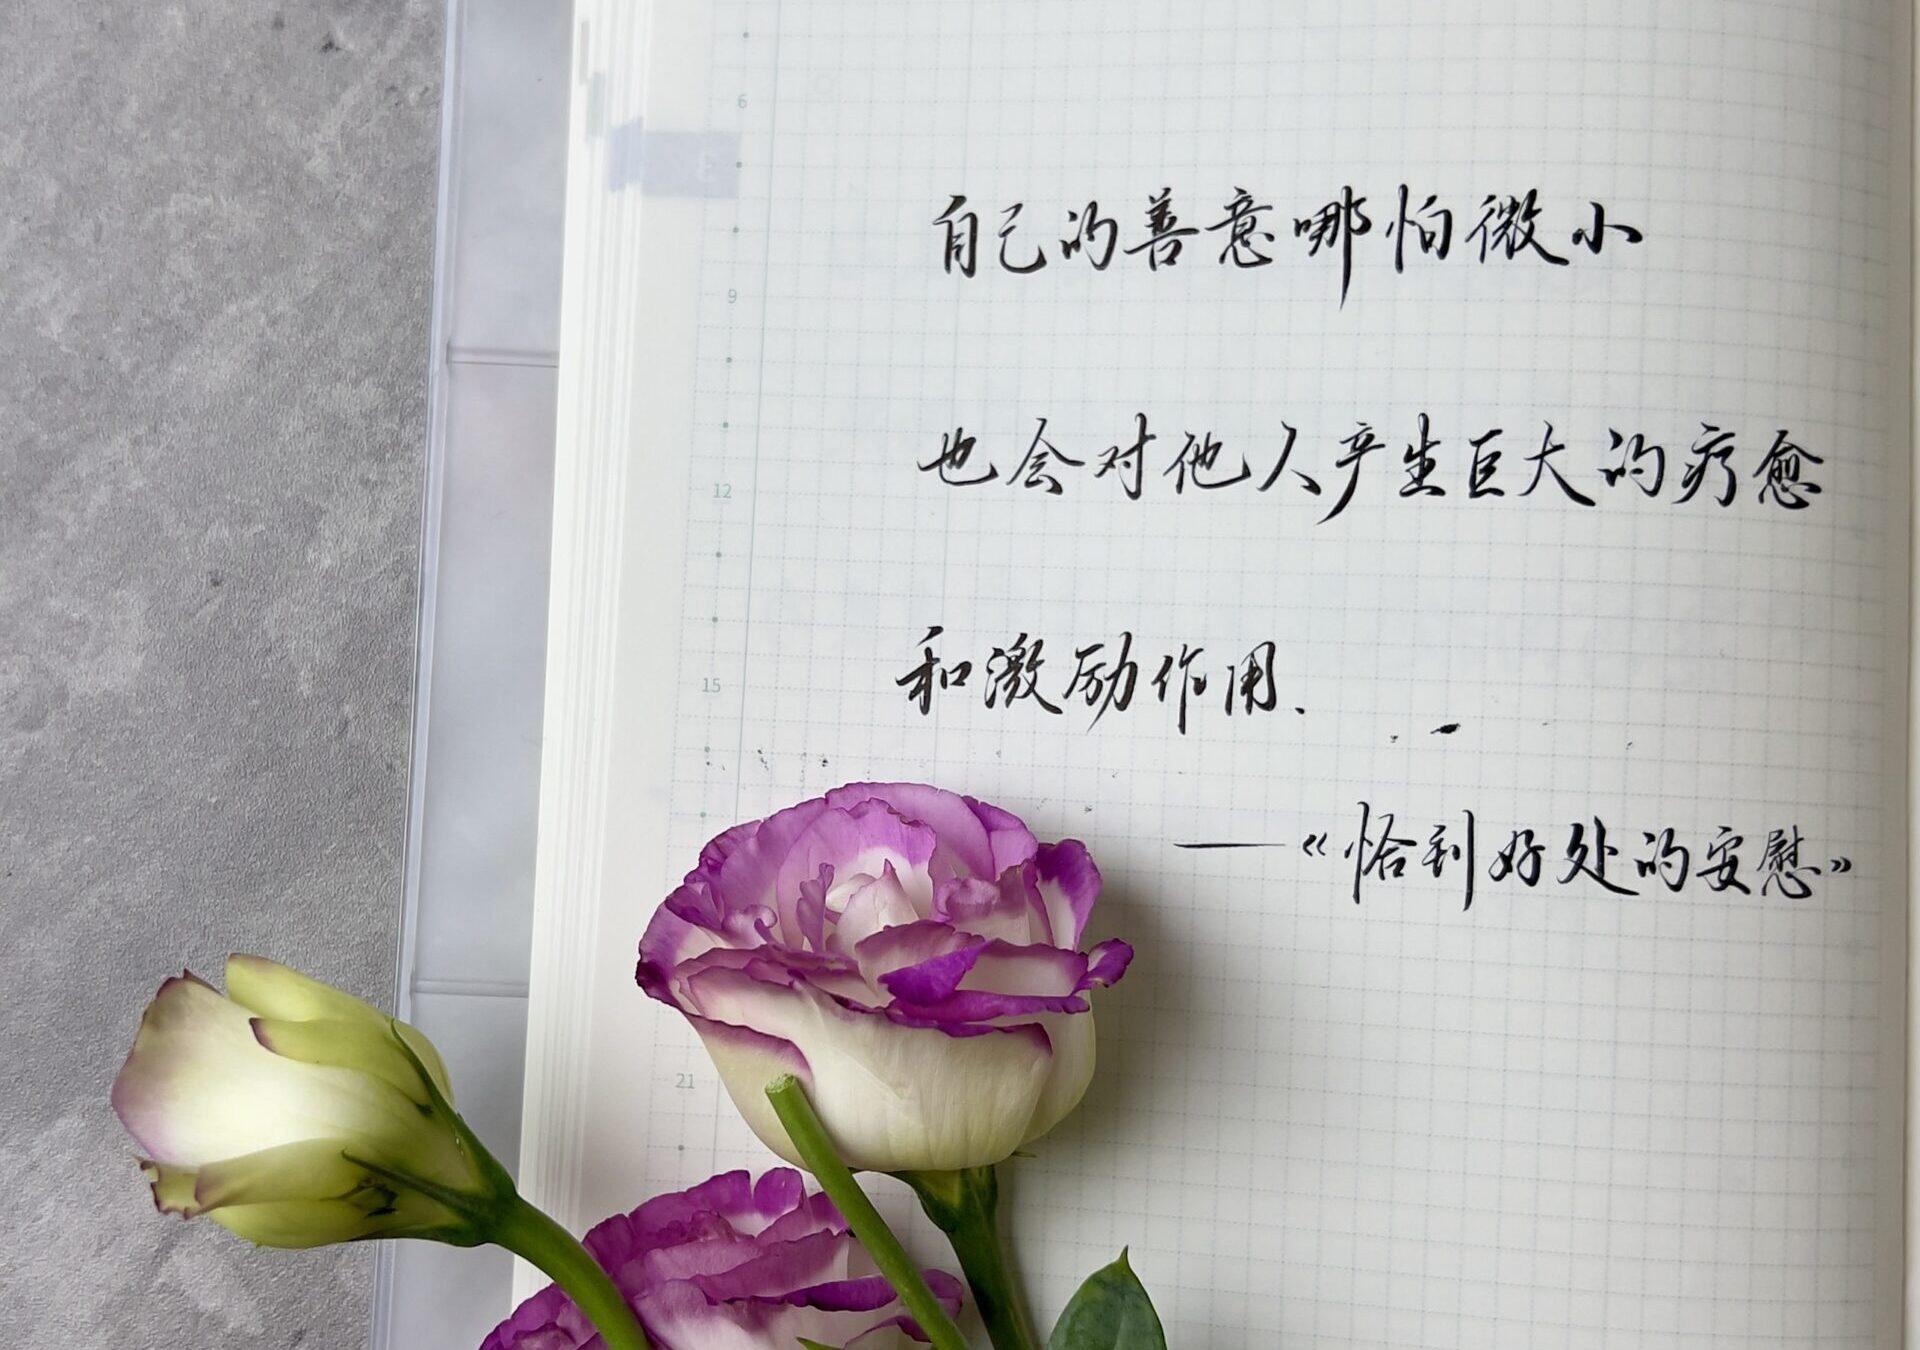 6
9
12
15
21
自己的善意哪怕微小
也会对他人产生巨大的疗愈
和激励作用.
——《恰到好处的安慰》